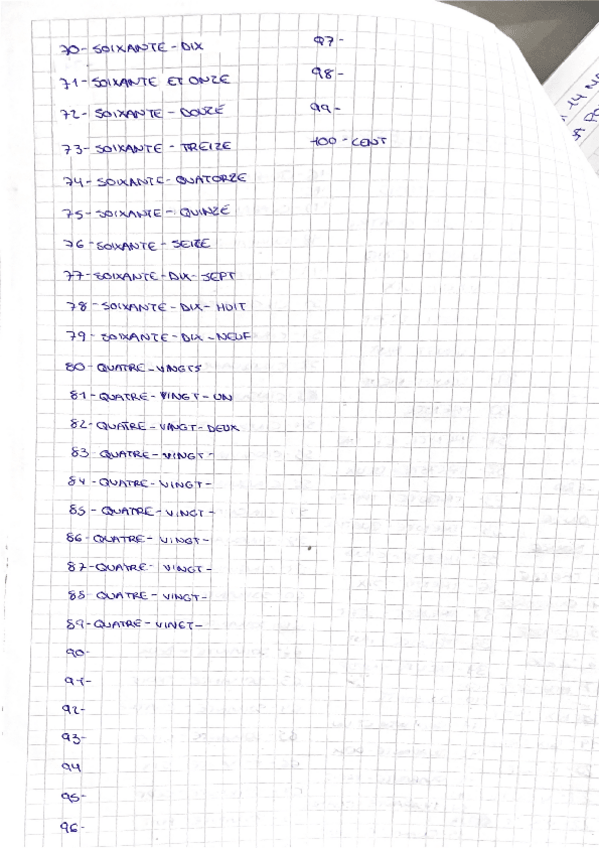 70- SOIXANTE - DIX
71- SOIXANTE ET ONZE
72- SOIXANTE - DOUZE
73- SOIXANTE - TREIZE
74- SOIXANTE- QUATORZE
75- SOIXANTE - QUINZE
76- SOIXANTE - SEIZE
77- SOIXANTE- DIX- SEPT
78- SOIXANTE - DIX- HUIT
79- SOIXANTE - DIX - NEUF
80- QUATRE- VINGTS
81- QUATRE- VINGT- UN
82- QUATRE- VINGT- DEUX
83 QUATRE- VINGT-
84- QUATRE- VINGT-
85- QUATRE- VINGT-
86- QUATRE- VINGT-
87- QUATRE- VINGT-
88- QUATRE- VINGT-
89- QUATRE- VINGT-
90-
91-
92-
93-
94
95-
96-
97-
98-
99-
100- CENT